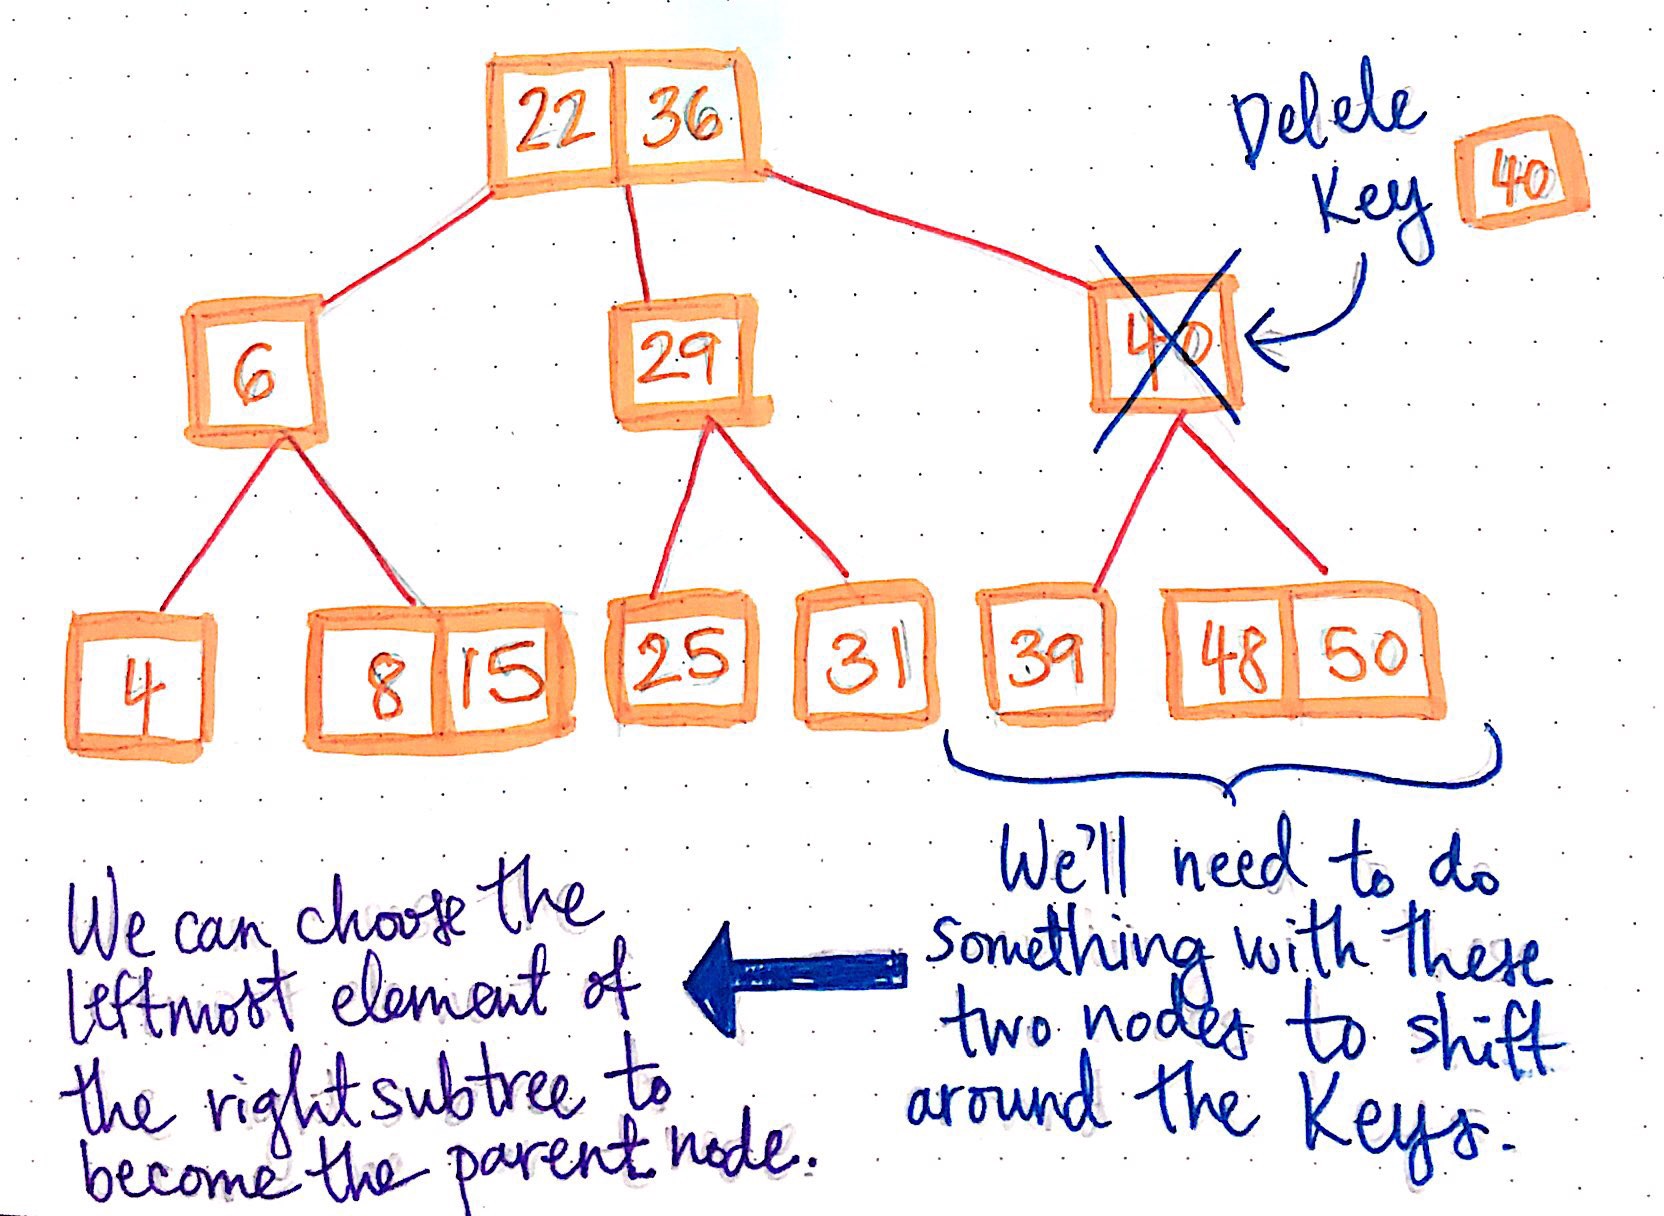 22 36
Delete
Key
40
6
29
40
4
8 15
25
31
39
48 50
We'll need to do
something with these
two nodes to shift
around the keys.
We can choose the
leftmost element of
the right subtree to
become the parent node.